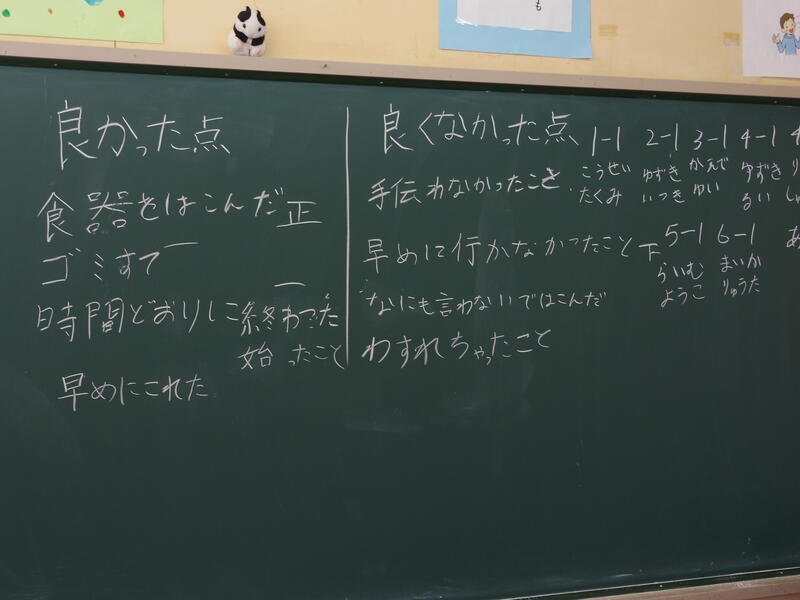 も
良かった点
食器をはこんだ 正
ゴミすて 一
時間どおりに終わった 一
始ったこと
早めにこれた
良くなかった点
手伝わなかったこと
早めに行かなかったこと 下
なにも言わないではこんだ
わすれちゃったこと
1-1 2-1 3-1 4-1
こうせい ゆずき かえで ゆずき
たくみ いつき ゆい るい
5-1 6-1
らいむ まいか
ようこ りゅうた